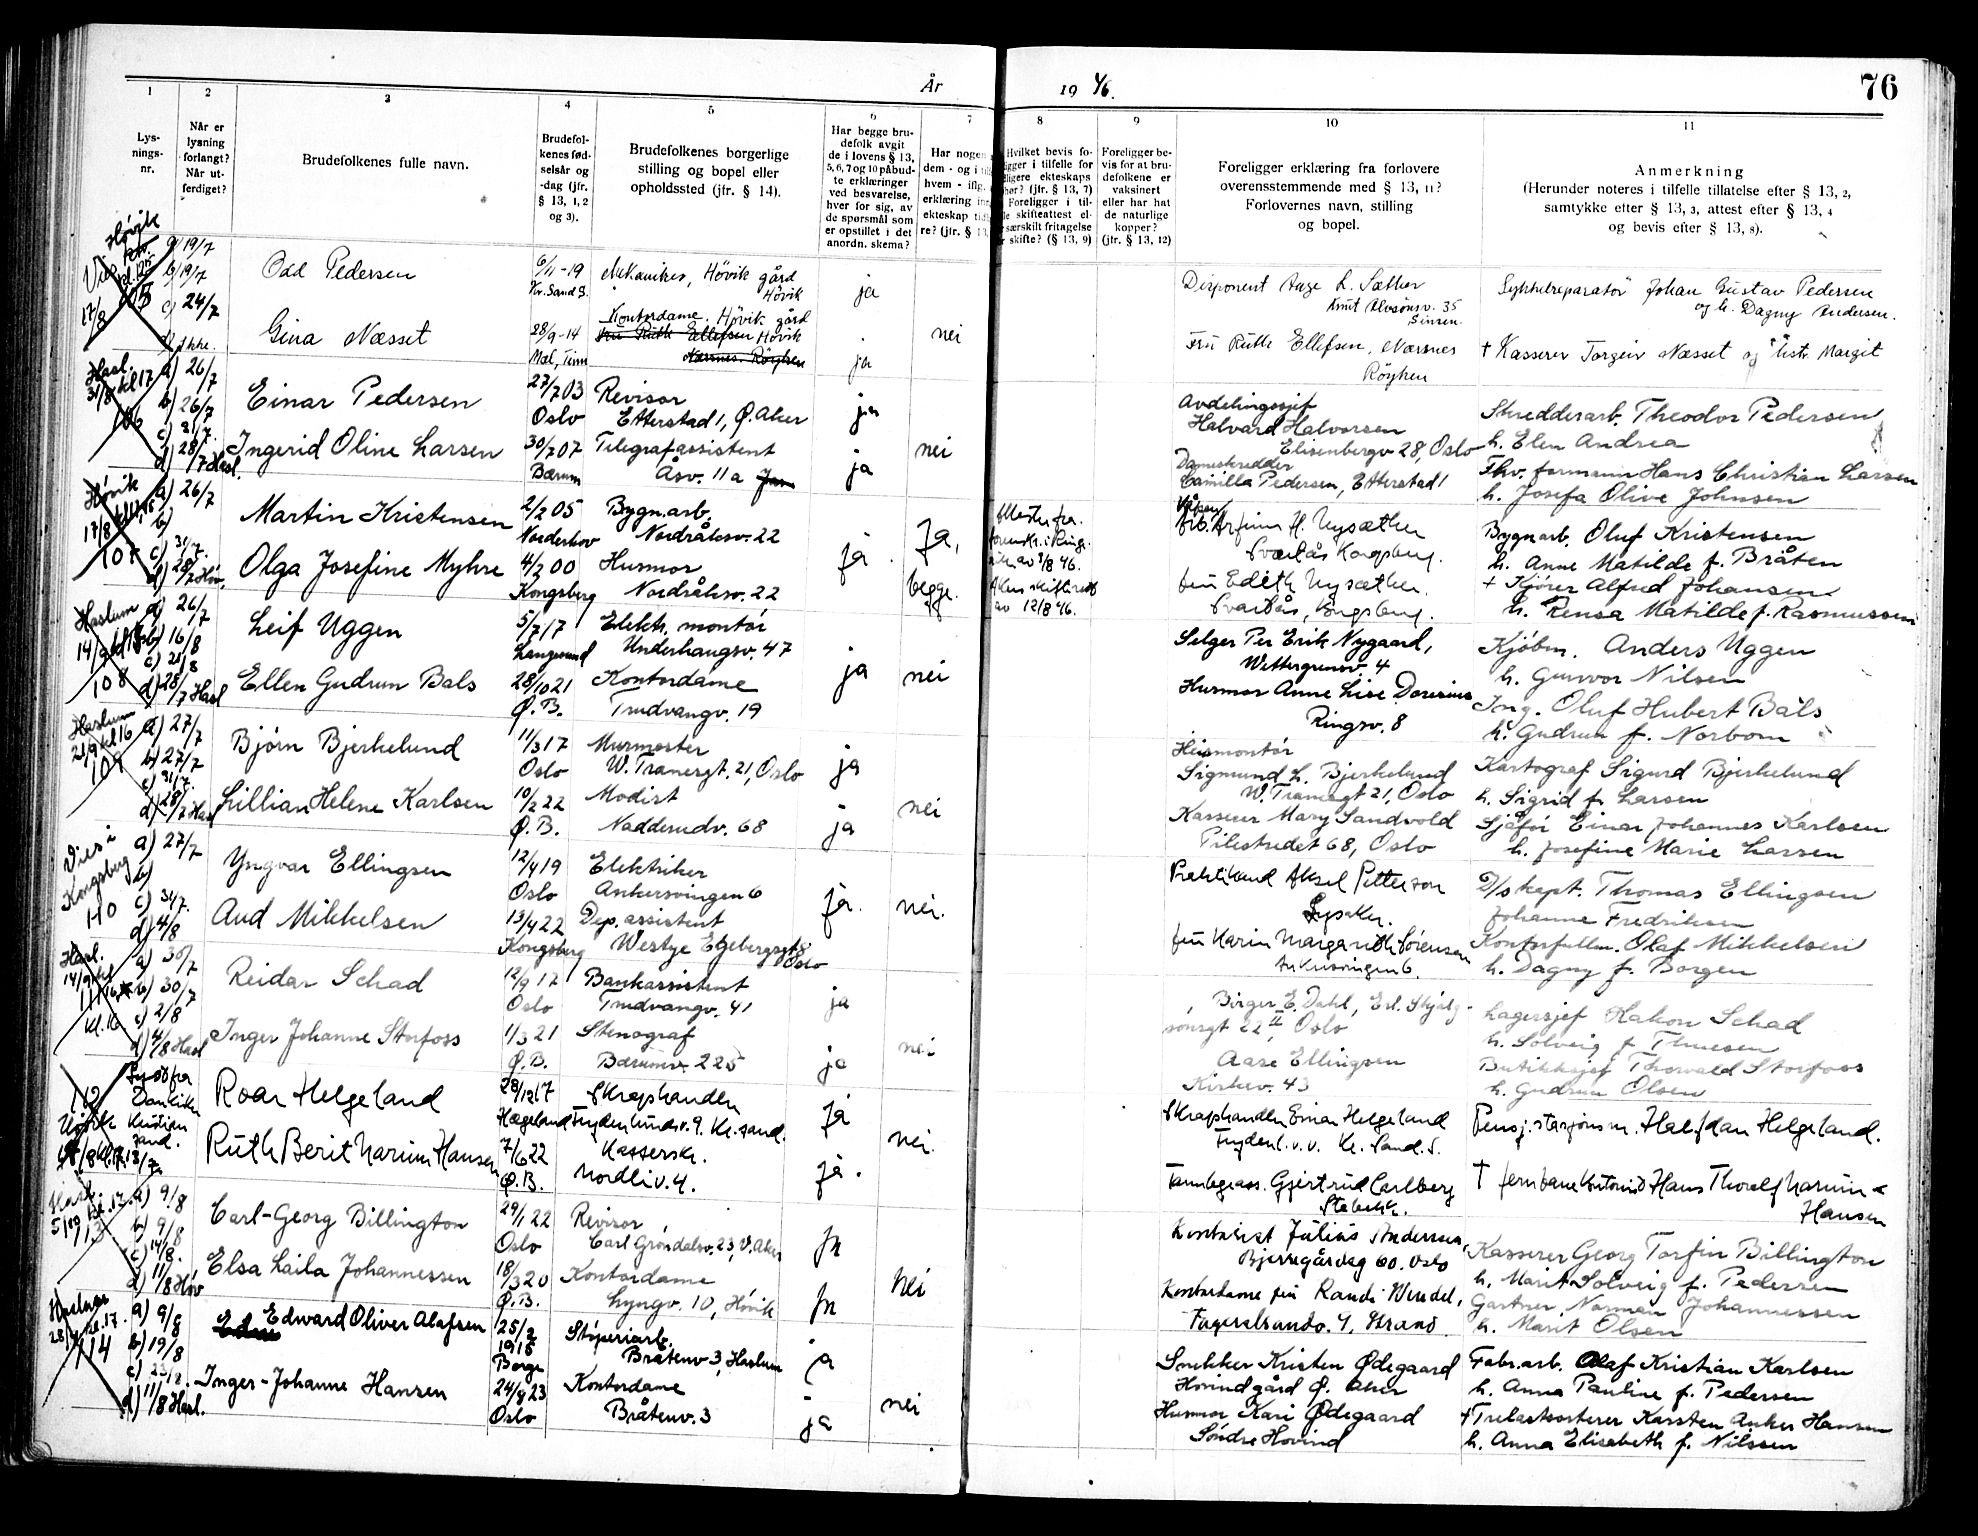 År 1946.
76
1
2
3
4
5
6
7
8
9
10
11
Lys-
nings-
nr.
Når er
lysning
forlangt?
Når ut-
ferdiget?
Brudefolkenes fulle navn.
Brudefol-
kenes fød-
selsår og
-dag (jfr.
§ 13, 1, 2
og 3).
Brudefolkenes borgerlige
stilling og bopel eller
opholdssted (jfr. § 14).
Har begge bru-
defolk avgit
de i lovens § 13,
5, 6, 7 og 10 påbud-
te erklæringer
ved besvarelse,
hver for sig, av
de spørsmål som
er opstillet i det
anordn. skema?
Har nogen
dem - og i
hvem - iflg.
erklæring
ekteskap
re? (jfr. §
Hvilket bevis fo-
ligger i tilfelle for
ligere ekteskaps
hør? (jfr. § 13, 7)
Foreligger i til-
le skifteattest el-
særskilt fritagelse
skifte? (§ 13, 9)
Foreligger be-
vis for at bru-
defolkene er
vaksinert
eller har hat
de naturlige
kopper?
(jfr. § 13, 12)
Foreligger erklæring fra forlovere
overensstemmende med § 13, 11?
Forlovernes navn, stilling
og bopel.
Anmerkning
(Herunder noteres i tilfelle tillatelse efter § 13, 2,
samtykke efter § 13, 3, attest efter § 13, 4
og bevis efter § 13, 8).
Høvik
17/8
a) 19/7
b) 19/7
c) 24/7
d) Ikke.
Odd Pedersen
6/11-19
Kr.sand S.
Mekaniker, Høvik gård
Høvik
ja
Disponent Aage L. Sæther
Knut Alvsønsv. 35
Sinsen.
Sykkelreparatør Johan Gustav Pedersen
og h. Dagny Andersen.
Gina Næsset
28/9-14
Mæl, Tinn
Kontordame. Høvik gård
Fru Ruth Ellefsen Høvik
Nærsnes. Røyken
ja
nei
Fru Ruth Ellefsen, Nærsnes
Røyken
+ Kasserer Torgeir Næsset og hustr. Margit
Hasl.
31/8 kl 17
106
a) 26/7
b) 26/7
c) 31/7.
d) 28/7 Hasl.
Einar Pedersen
27/7 03
Oslo
Revisor
Etterstad 1, Ø. Aker
ja
Avdelingssjef
Halvard Halvorsen
Elisenbergv 28, Oslo
Skredderarb. Theodor Pedersen
h. Elen Andrea
Ingerid Oline Larsen
30/7 07
Bærum
Telegrafassistent
Åsv. 11a
ja
nei
Dameskredder
Camilla Pedersen, Etterstad 1
Fhv. formann Hans Christian Larsen
h. Josefa Olive Johnsen
Høvik
17/8
107
a) 26/7
b)
c) 31/7.
d) 28/7 Høv.
Martin Kristensen
2/2 05
Norderhov
Bygn.arb.
Nordråksv. 22
Ja,
Arb. Arfinn H. Nysæther
Svartås Kongsberg.
Bygn.arb. Oluf Kristensen
h. Anne Matilde f. Bråten
Olga Josefine Myhre
4/2 00
Kongsberg
Husmor
Nordråksv. 22
ja.
begge.
av 12/8 46.
fru Edith Nysæther.
Svartås, Kongsberg.
+ Kjører Alfred Johansen
h. Rensa Matilde f. Rasmussen
Haslum
14/9
108
a) 26/7
b) 16/8
c) 21/8
d) 28/7 Hasl
Leif Uggen
5/7 17
Langesund
Elektr. montør
Underhaugsv. 47
ja
Selger Per Erik Nygaard,
Wettergrensv. 4
Kjøbm. Anders Uggen
h. Gunvor Nilsen
Ellen Gudrun Bals
28/10 21
Ø.B.
Kontordame
Trudvangv. 19
nei
Husmor Anne Lise Doresius
Ringsv. 8
Ing. Oluf Hubert Bals
h. Gudrun f. Norbom
Haslum
21/9 kl 16
109
a) 27/7
b) 27/7
c) 31/7.
d) 28/7 Hasl
Bjørn Bjerkelund
11/3 17
Oslo
Murmester
W. Tranesgt. 21, Oslo
ja
Heismontør
Sigmund L. Bjerkelund
W. Tranesgt 21, Oslo
Kartograf Sigurd Bjerkelund
h. Sigrid f. Larsen
Lillian Helene Karlsen
10/2 22
Ø.B.
Modist
Nadderudv. 68
ja
nei
Kasserer Mary Sandvold
Pilestredet 68, Oslo
Sjåfør Einar Johannes Karlsen
h. Josefine Marie Larsen
Vies i
Kongsberg
110
a) 27/7
b)
c) 31/7.
d) 4/8
Yngvar Ellingsen
12/4 19
Oslo
Elektriker
Ankersvingen 6
ja.
nei.
Praktikand Aksel Petterson
Lysaker.
D/s kapt. Thomas Ellingsen
Johanne Fredriksen
Aud Mikkelsen
13/4 22
Kongsberg
Dep. assistent
Westye Egebergsgt 8
Oslo
fru Karin Margareth Sørensen
Ankersvingen 6.
Kontorfullm. Olaf Mikkelsen
h. Dagny f. Borgen
Hasl.
14/9 kl
kl. 16
a) 30/7
b) 30/7
c) 2/8
d) 4/8 Hasl
Reidar Schad
12/9 17
Oslo
Bankassistent
Trudvangv. 41
ja
Birger E. Dahl, Erl. Skjalg-
sønsgt 22 II, Oslo
Lagersjef Hakon Schad
h. Solveig f. Thuesen
Inger Johanne Storfoss
1/3 21
Ø.B.
Stenograf
Bærumsv. 225
ja
nei
Aase Ellingsen
Kirkev. 43
Butikksjef Thorvald Storfoss
h. Gudrun Olsen
112
Lyst fra
Domkirken
Kristian
sand.
Roar Helgeland
28/12 17
Hægeland
Skraphandler
Frydenlundsv. 9. Kr.sand.
Ja
Skraphandler Einar Helgeland
Frydenl.v.v. Kr. Sand. S.
Pensj. stasjonsm. Halfdan Helgeland.
Ruth Berit Narum Hansen
7/6 22
Ø.B.
Kasserske.
Nordliv. 4.
ja.
nei.
Tannlegeass. Gjertrud Carlberg
Stabekk.
+ Jernbanekontorist Hans Thoralf Narum-
Hansen
Hasl.
5/10 kl. 17.
113
a) 9/8
b) 9/8
c) 14/8.
d) 11/8 Høv
Carl-Georg Billington
29/1 22
Oslo
Revisor
Carl Grøndalsv. 23, V. Aker
ja
Kontorist Julius Andersen,
Bjerregårdsg 60. Oslo
Kasserer Georg Torfin Billington
h. Marit Solveig f. Pedersen
Elsa Laila Johannessen
18/3 20
Ø.B.
Kontordame
Lyngv. 10, Høvik
ja
nei
Kontordame frk Randi Wendel,
Fagerstrandv. 9, Strand
Gartner Norman Johannessen
h. Marit Olsen
Haslum
kl. 17.
114
a) 9/8
b) 19/8
c) 23/8.
d) 11/8 Hasl.
Edward Oliver Olafsen
25/2
1915
Borge
Støperiarb.
Bråtenv 3, Haslum
ja
Snekker Kristen Ødegaard
Hovind gård Ø. Aker
Fabr.arb. Olaf Kristian Karlsen
h. Anna Pauline f. Pedersen
Inger-Johanne Hansen
24/8 23
Oslo
Kontordame
Bråtenv. 3
ja
nei
Husmor Kari Ødegaard
Søndre Hovind
+ Trelastsorterer Karsten Anker Hansen
h. Anna Elisabeth f. Nilssen